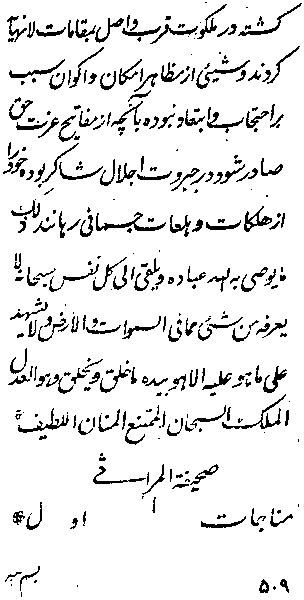 گشته در ملکوت قرب واصل بمقامات لانهایه
گردند و شیئی از مظاهر امکان و اکوان سبب
بر احتجاب و ابتعاد نبوده بآنچه از مفاتیح عزت حق
صادر شود در جبروت اجلال شاکر بوده خود را
از هلکات و بلعات جسمانی رهانند ذلک
ما یوصی به الله عباده و یلقی الی کل نفس سبحانه لا
یعرفه من شیئی مما فی السموات والارض و لا یشهد
علی ما هو علیه الا هو بیده ما خلق و یخلق و هو العدل
الملک السبحان الممتنع المنان اللطیف
صحیفة المراسی
مناجات اول
بسم
۵۰۹